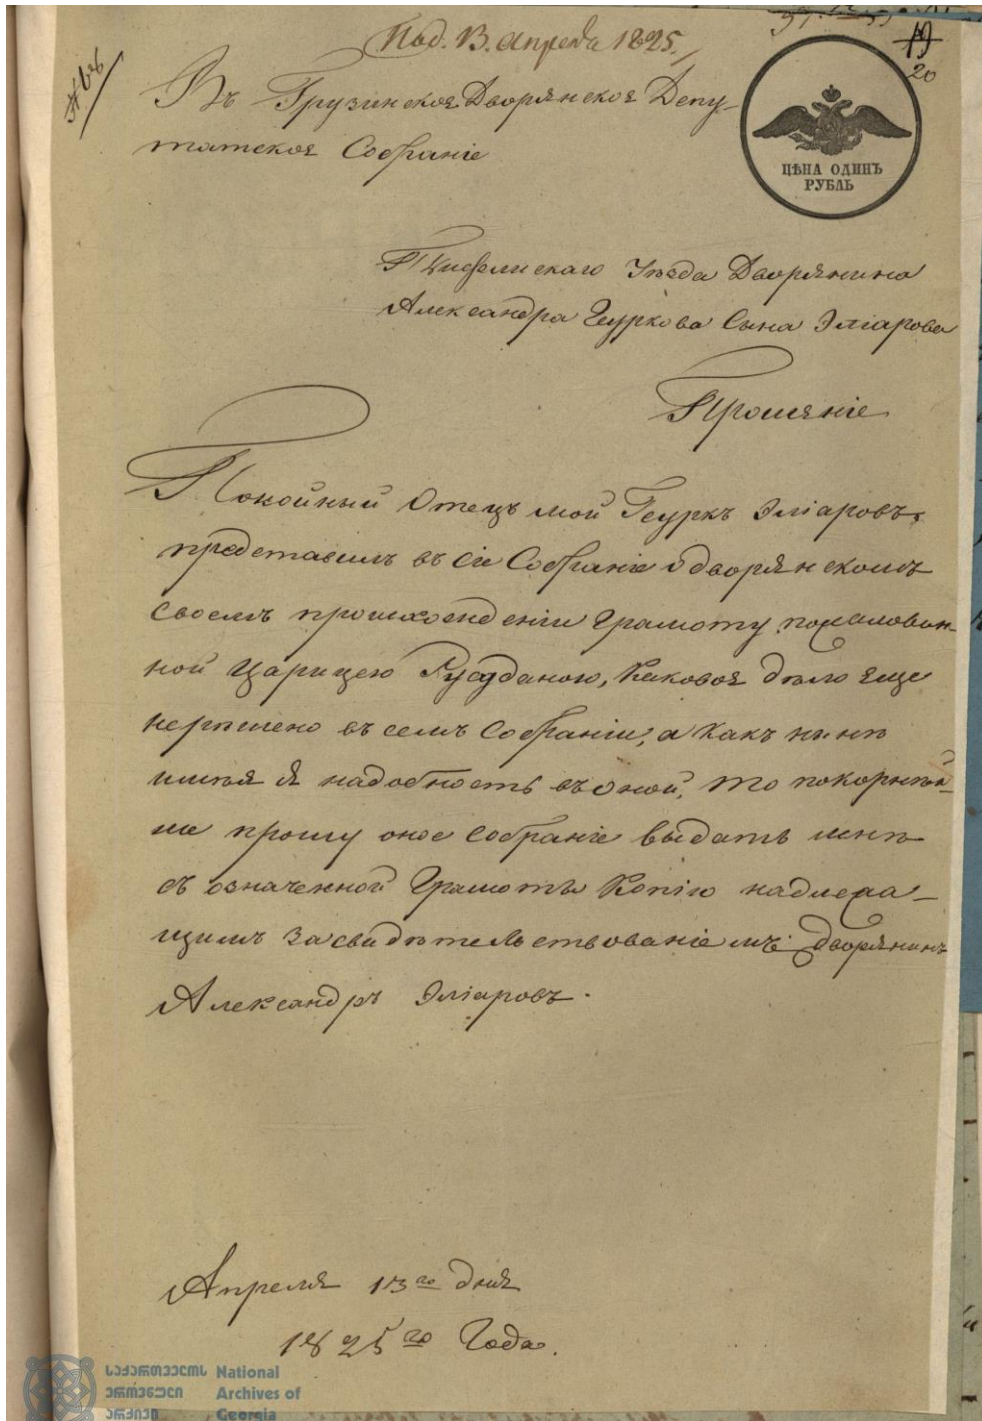 Под. 13. апреля 1825.
№ 68
19
20
Въ Грузинское Дворянское Депу-
татское Собраніе
ЦѢНА ОДИНЪ
РУБЛЬ
Тифлискаго Уѣзда Дворянина
Александра Геуркова Сына Эліарова
Прошеніе
Покойный Отецъ мой Геуркъ Эліаровъ,
представилъ въ Сіе Собраніе о дворянскомъ
своемъ происхожденіи Грамоту пожалован-
ной Царицею Русуданою, Каковое дѣло еще
нерѣшено въ семъ Собраніи, а какъ нынѣ
имѣя я надобность въ оной, то покорнѣй-
ше прошу оное Собраніе выдать мнѣ
съ означенной Грамоты Копію надлежа-
щимъ засвидѣтельствованіемъ дворянинъ
Александръ Эліаровъ.
Апреля 13го дня
1825го Года.
საქართველოს National
ეროვნული Archives of
არქივი Georgia